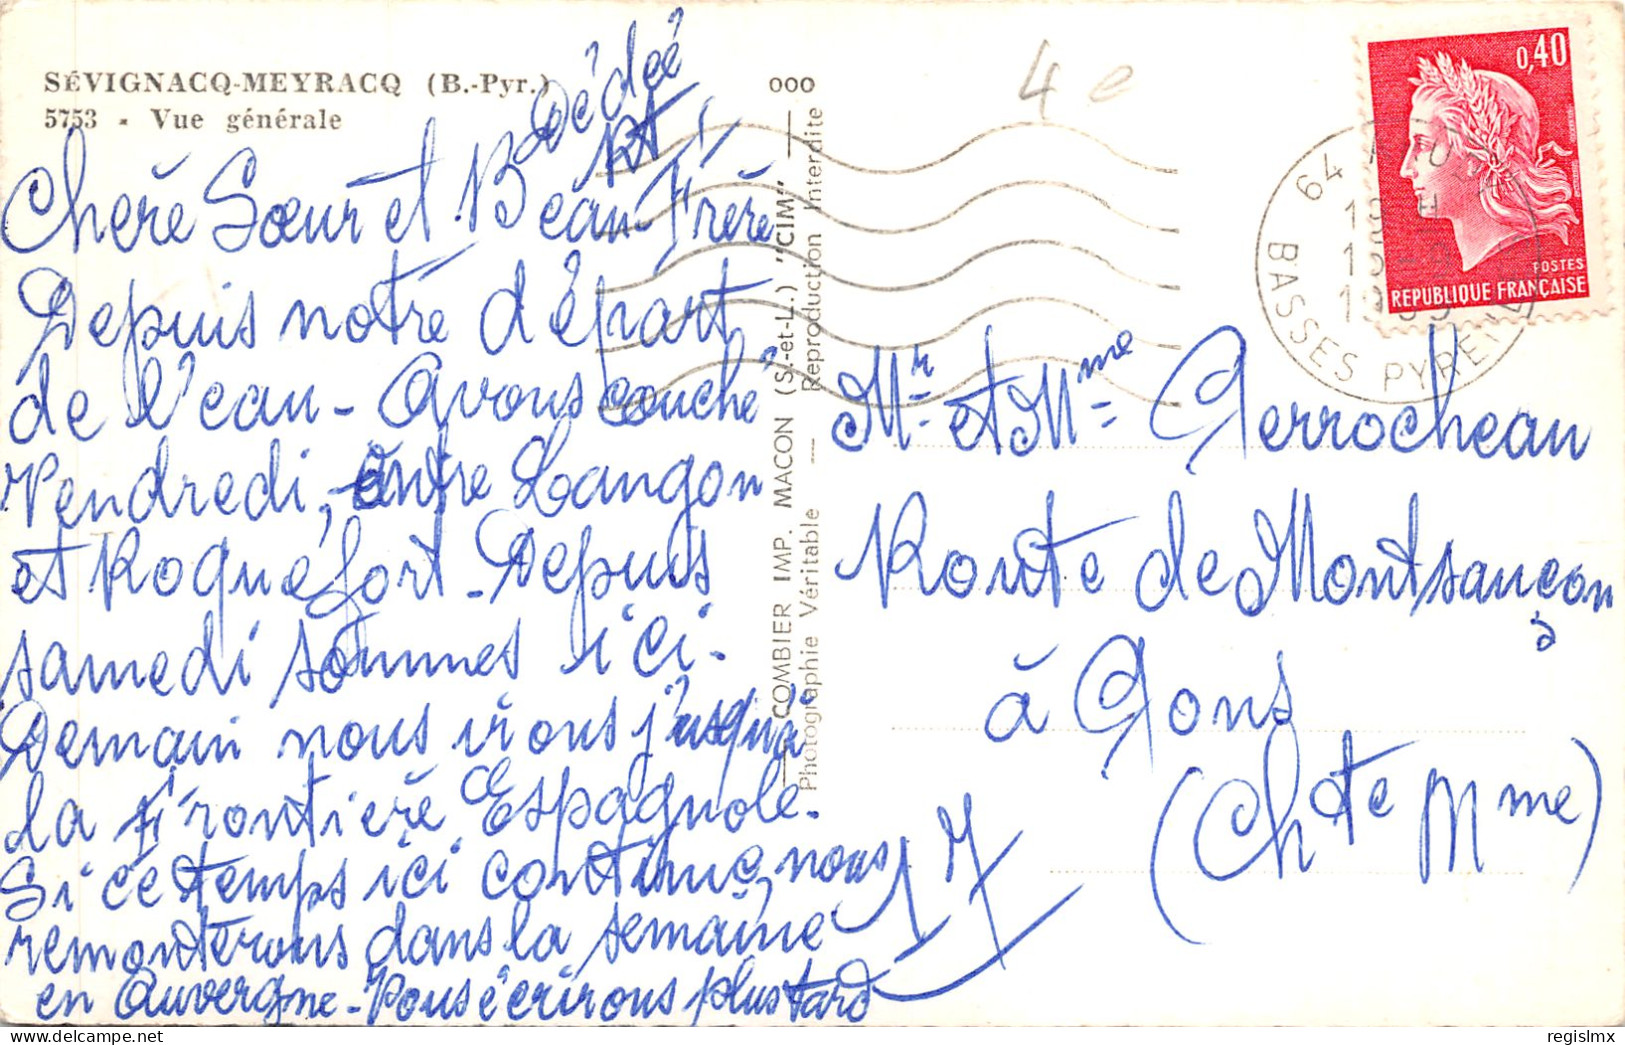 SÉVIGNACQ-MEYRACQ (B.-Pyr.)
5753 - Vue générale
Dédée
Chère Sœur et Beau-Frère
Depuis notre départ
de l'eau - Avons couché
Vendredi, entre Langon
et Roquefort. Depuis
samedi sommes ici.
Demain nous irons jusqu'à
la Frontière Espagnole.
Si ce temps ici continue, nous
remonterons dans la semaine
en Auvergne - Vous écrirons plus tard
17
000
COMBIER IMP. MACON (S.-et-L.) "CIM"
Photographie Véritable — Reproduction Interdite
4 e
0,40
POSTES
REPUBLIQUE FRANÇAISE
64
BASSES PYRENEES
Mr et Mme Gerrocheau
Route de Montsançon
à Gons
(Chte Mme)
regislmx